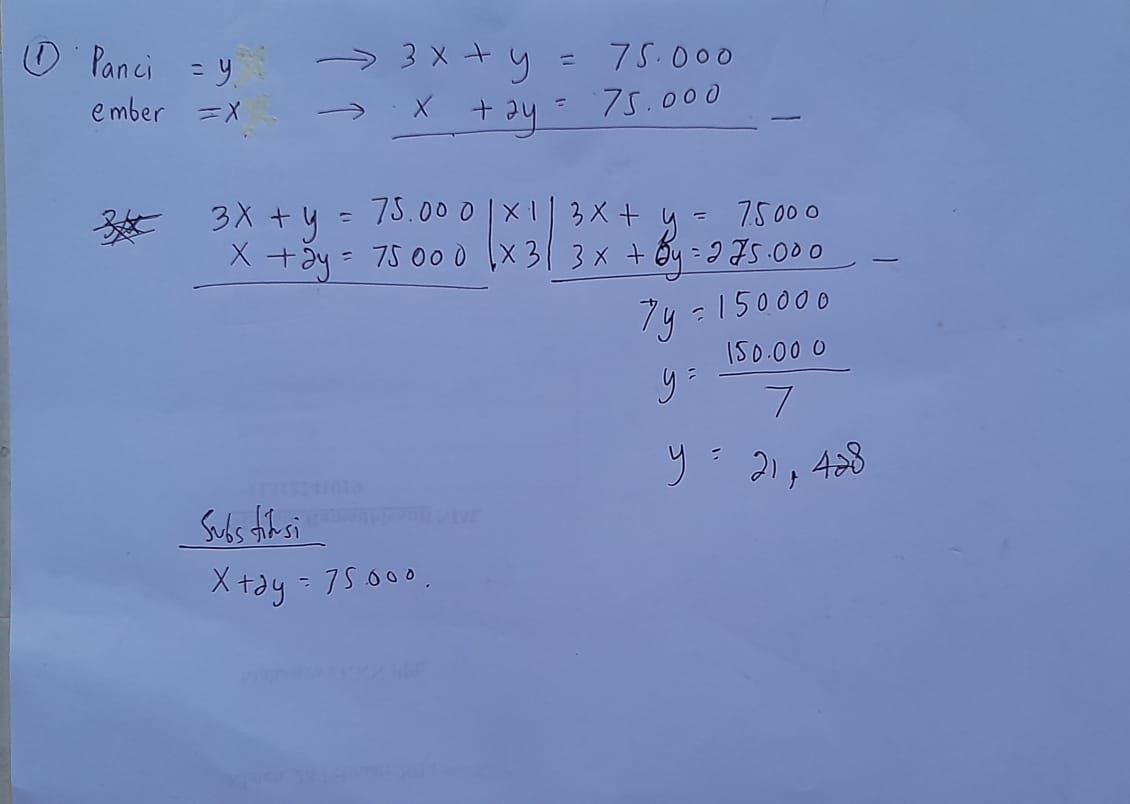 ① Panci = y → 3x + y = 75.000
ember = x → x + 2y = 75.000 —
3x + y = 75.000 | x 1 | 3x + y = 75000
x + 2y = 75000 | x 3 | 3x + 6y = 275.000 —
7y = 150000
y = 150.000 / 7
y = 21,428
Substitusi
x + 2y = 75.000.